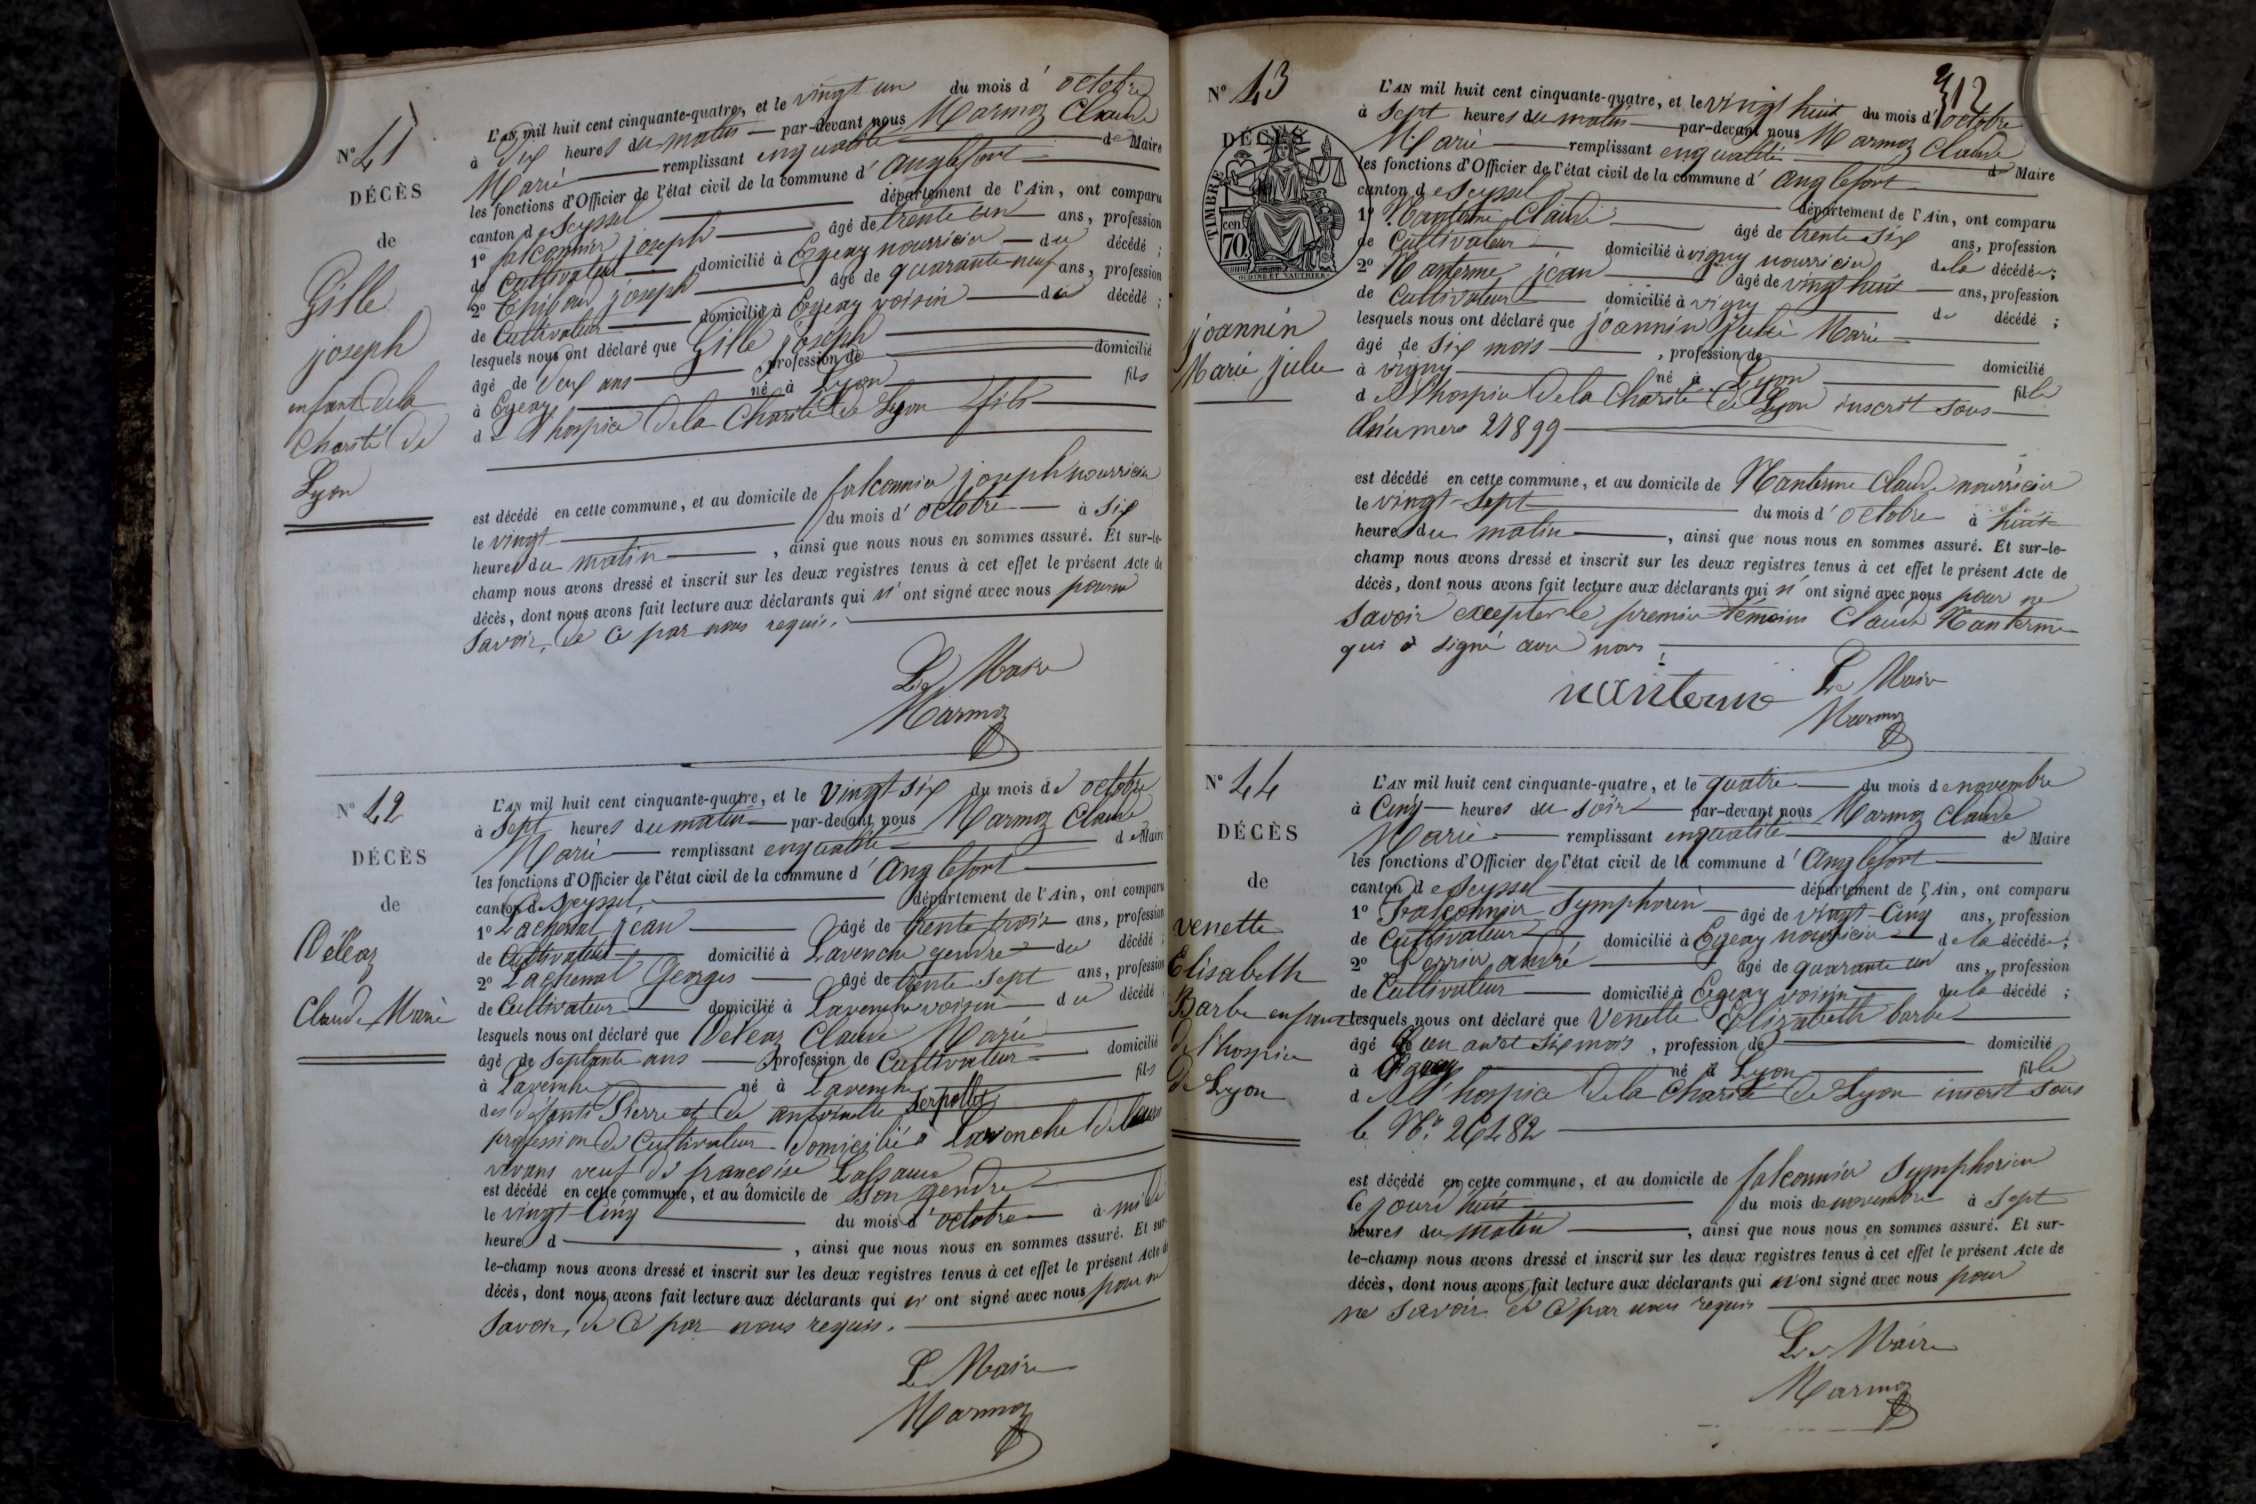 N° 41
DÉCÈS
de
Gille
joseph
enfant de la
Charité de
Lyon
L'AN mil huit cent cinquante-quatre, et le vingt un du mois d'octobre
à dix heures du matin par-devant nous Marmoz Claude
Marie remplissant en qualité de Maire
les fonctions d'Officier de l'état civil de la commune d'anglefort
canton de Seyssel département de l'Ain, ont comparu
1° falconnier joseph âgé de trente un ans, profession
de Cultivateur domicilié à Egeay nourricier du décédé ;
2° joseph âgé de quarante neuf ans, profession
de Cultivateur domicilié à Egeay voisin du décédé ;
lesquels nous ont déclaré que Gille joseph
âgé de deux ans profession de domicilié
à Egeay né à Lyon fils
de l'hospice de la Charité de Lyon fils
est décédé en cette commune, et au domicile de falconnier joseph nourricier
le vingt du mois d'octobre à six
heures du matin, ainsi que nous nous en sommes assuré. Et sur-le-
champ nous avons dressé et inscrit sur les deux registres tenus à cet effet le présent Acte de
décès, dont nous avons fait lecture aux déclarants qui n'ont signé avec nous pour ne
savoir, de ce par nous requis.
Le Maire
Marmoz
N° 42
DÉCÈS
de
Déléaz
Claude Marie
L'AN mil huit cent cinquante-quatre, et le vingt six du mois de octobre
à Sept heures du matin par-devant nous Marmoz Claude
Marie remplissant en qualité de Maire
les fonctions d'Officier de l'état civil de la commune d'anglefort
canton de Seyssel département de l'Ain, ont comparu
1° Lachenal jean âgé de trente trois ans, profession
de Cultivateur domicilié à Lavenche gendre du décédé ;
2° Lachenal Georges âgé de trente sept ans, profession
de Cultivateur domicilié à Lavenche voisin du décédé
lesquels nous ont déclaré que Déléaz Claude Marie
âgé de Septante ans profession de Cultivateur domicilié
à Lavenche né à Lavenche fils
des défunts Pierre et de antoinette Serpollet
profession de Cultivateur domicilié à Lavenche de leurs
vivans veuf de françoise
est décédé en cette commune, et au domicile de son gendre
le vingt Cinq du mois d'octobre à midi
heure d , ainsi que nous nous en sommes assuré. Et sur-
le-champ nous avons dressé et inscrit sur les deux registres tenus à cet effet le présent Acte de
décès, dont nous avons fait lecture aux déclarants qui n'ont signé avec nous pour ne
savoir, de ce par nous requis.
Le Maire
Marmoz
312
N° 43
DÉCÈS
TIMBRE
cen. 70
joannin
Marie julie
L'AN mil huit cent cinquante-quatre, et le vingt huit du mois d'octobre
à Sept heures du matin par-devant nous Marmoz Claude
Marie remplissant en qualité de Maire
les fonctions d'Officier de l'état civil de la commune d'anglefort
canton de Seyssel département de l'Ain, ont comparu
1° Nanterme Claude âgé de trente six ans, profession
de Cultivateur domicilié à vigny nourricier de la décédée ;
2° Nanterme jean âgé de vingt huit ans, profession
de Cultivateur domicilié à vigny de décédé ;
lesquels nous ont déclaré que joannin julie Marie
âgé de six mois, profession de domicilié
à vigny né à Lyon fille
de l'hospice de la Charité de Lyon inscrit sous
le numero 21899
est décédé en cette commune, et au domicile de Nanterme Claude nourricier
le vingt-Sept du mois d'octobre à huit
heures du matin, ainsi que nous nous en sommes assuré. Et sur-le-
champ nous avons dressé et inscrit sur les deux registres tenus à cet effet le présent Acte de
décès, dont nous avons fait lecture aux déclarants qui n'ont signé avec nous pour ne
savoir excepter le premier témoins Claude Nanterme
qui a signé avec nous
nanterme Le Maire
Marmoz
N° 44
DÉCÈS
de
venette
Elisabeth
Barbe enfant
de l'hospice
de Lyon
L'AN mil huit cent cinquante-quatre, et le quatre du mois de novembre
à Cinq heures du soir par-devant nous Marmoz Claude
Marie remplissant en qualité de Maire
les fonctions d'Officier de l'état civil de la commune d'anglefort
canton de Seyssel département de l'Ain, ont comparu
1° Falconnier Symphorien âgé de vingt-Cinq ans, profession
de Cultivateur domicilié à Egeay nourricier de la décédée ;
2° Perrier andré âgé de quarante un ans, profession
de Cultivateur domicilié à Egeay voisin de la décédé ;
lesquels nous ont déclaré que Venette Elizabeth barbe
âgé de un an et six mois, profession de domicilié
à Egeay né à Lyon fille
de l'hospice de la Charité de Lyon inscrit sous
le N° 26482
est décédé en cette commune, et au domicile de falconnier Symphorien
le jourd'huit du mois de novembre à Sept
heures du matin, ainsi que nous nous en sommes assuré. Et sur-
le-champ nous avons dressé et inscrit sur les deux registres tenus à cet effet le présent Acte de
décès, dont nous avons fait lecture aux déclarants qui n'ont signé avec nous pour
ne savoir de ce par nous requis
Le Maire
Marmoz